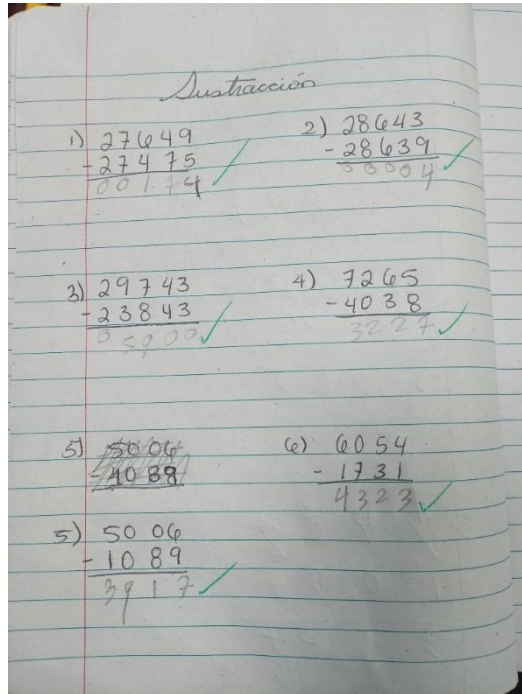 Sustracción
1) 27649
- 27475
00174
2) 28643
- 28639
00004
3) 29743
- 23843
05900
4) 7265
- 4038
3227
5) 5006
- 4088
6) 6054
- 1731
4323
5) 5006
- 1089
3917